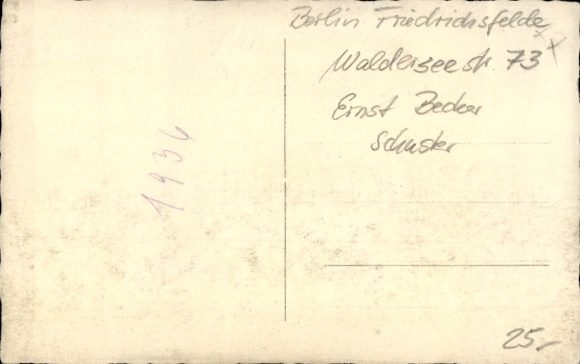 Berlin Friedrichsfelde
Walderseestr. 73
Ernst Becker
Schuster
1934
25,-